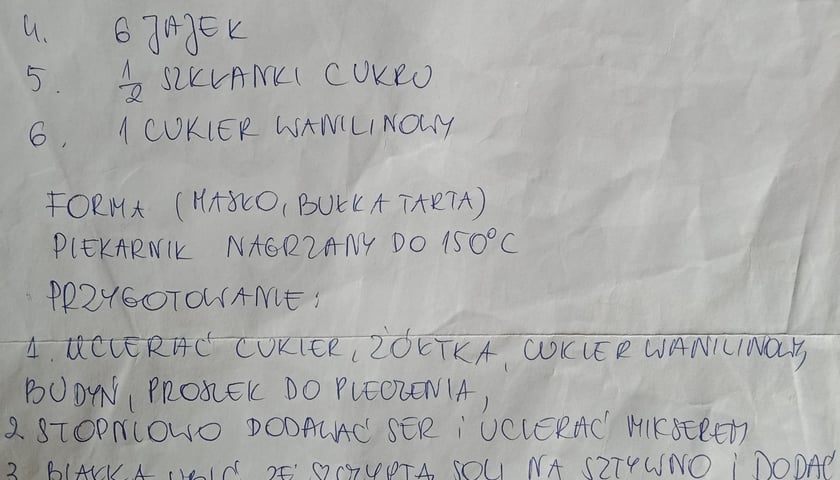 4. 6 JAJEK
5. 1/2 SZKLANKI CUKRU
6. 1 CUKIER WANILINOWY
FORMA (MASŁO, BUŁKA TARTA)
PIEKARNIK NAGRZANY DO 150°C
PRZYGOTOWANIE:
1. UCIERAĆ CUKIER, ŻÓŁTKA, CUKIER WANILINOWY,
BUDYŃ, PROSZEK DO PIECZENIA,
2. STOPNIOWO DODAWAĆ SER i UCIERAĆ MIKSEREM
3. BIAŁKA UBIĆ ZE SZCZYPTĄ SOLI NA SZTYWNO i DODAĆ